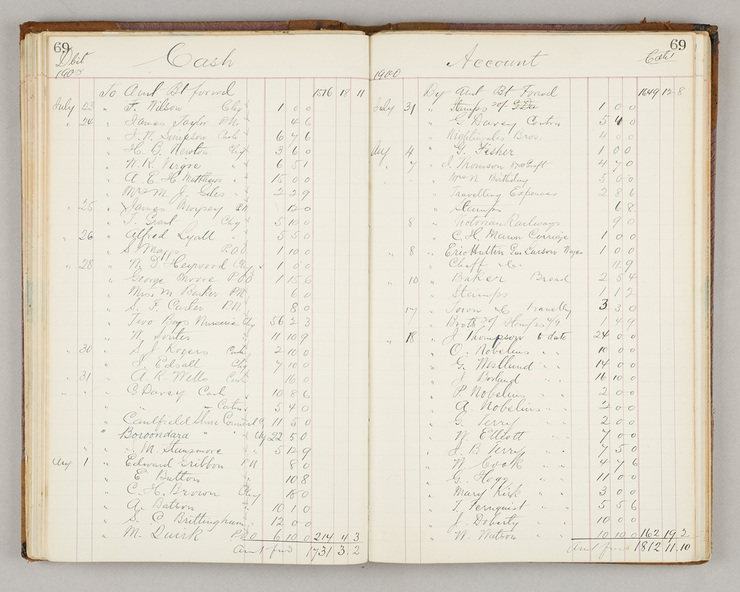 69
Debit
Cash
1900
To Amt Bt forwd 1516 18 11
July 23 " F. Wilson Chq 1 0 0
" 24 " James Taylor P.N. 4 6
" J. W. Simpson Cash 6 7 6
" H. G. Newton Chq 3 6 0
" W. R. Virgoe 6 5 1
" A. E. H. Matthews 15 0 0
" Mrs M. J. Giles 2 2 9
" 25 " James P.N. 12 0
" T. Grant Chq 5 10 0
" 26 " Alfred Lyall 5 5 0
" S. Mapp P.O.O 1 10 0
" 28 " W. D. Heywood Chq 1 0 0
" George Moore P.O.O 1 15 6
" Miss M Barker P.N. 6 0
" S. F. Carter P.N. 8 0
" Two Bays Nurseries Chq 56 2 3
" W. Souter 11 10 9
" 30 " S. J. Rogers Cash 2 10 0
" J. Edsall Chq 7 10 0
" 31 " A. R. Wells Cash 16 0
" C Davey Cash 10 8 6
" " " Contra 5 4 0
" Caulfield Shire Council C 11 5 0
" Boroondara " " Chq 22 5 0
" M. Stansmore " 5 12 9
Aug 1 " Edward Gribbon P.N 8 0
" E Button 10 8
" C. H. Brown Chq 18 0
" A. Batson 10 1 0
" S. C. Brittingham 12 0 0
" M. Quirk P.O.O 6 10 0 214 4 3
Amt fwd 1731 3 2
69
Account
1900
By Amt Bt Forwd 1649 12 8
July 31 " Stamps 1 0 0
" C. Davey Contra 5 4 0
Aug 4 " G. Fisher 1 0 0
" 7 " J. Thomson 4 7 0
Mrs N. 5 0 0
Travelling Expenses 2 8 6
Stamps 6 8
" 8 " Victorian Railways 9 0
" C. H. Mann Carriage 1 0 0
" 8 " Eric Hutton Wages 1 0 0
" 10 " Baker Bread 2 5 4
Stamps 1 1 2
" 17 " 3 3 0
" 18 " J. Thompson to date 24 0 0
" O. Nobelius " " 10 0 0
" G. Westlund " " 14 0 0
" J. " " 16 10 0
" P. Nobelius " 2 0 0
" A. Nobelius " " 2 0 0
" G. Terry " " 2 0 0
" W. Elliott " " 7 0 0
" J. B. Terry " " 7 5 0
" W Cook " " 4 7 6
" G. Hogg " " 11 0 0
" Mary Kirk " " 3 0 0
" T. Fernquist " " 5 5 6
" J. Doherty " " 10 0 0
" W. Watson " " 10 10 0 162 19 2
Amt fwd 1812 11 10